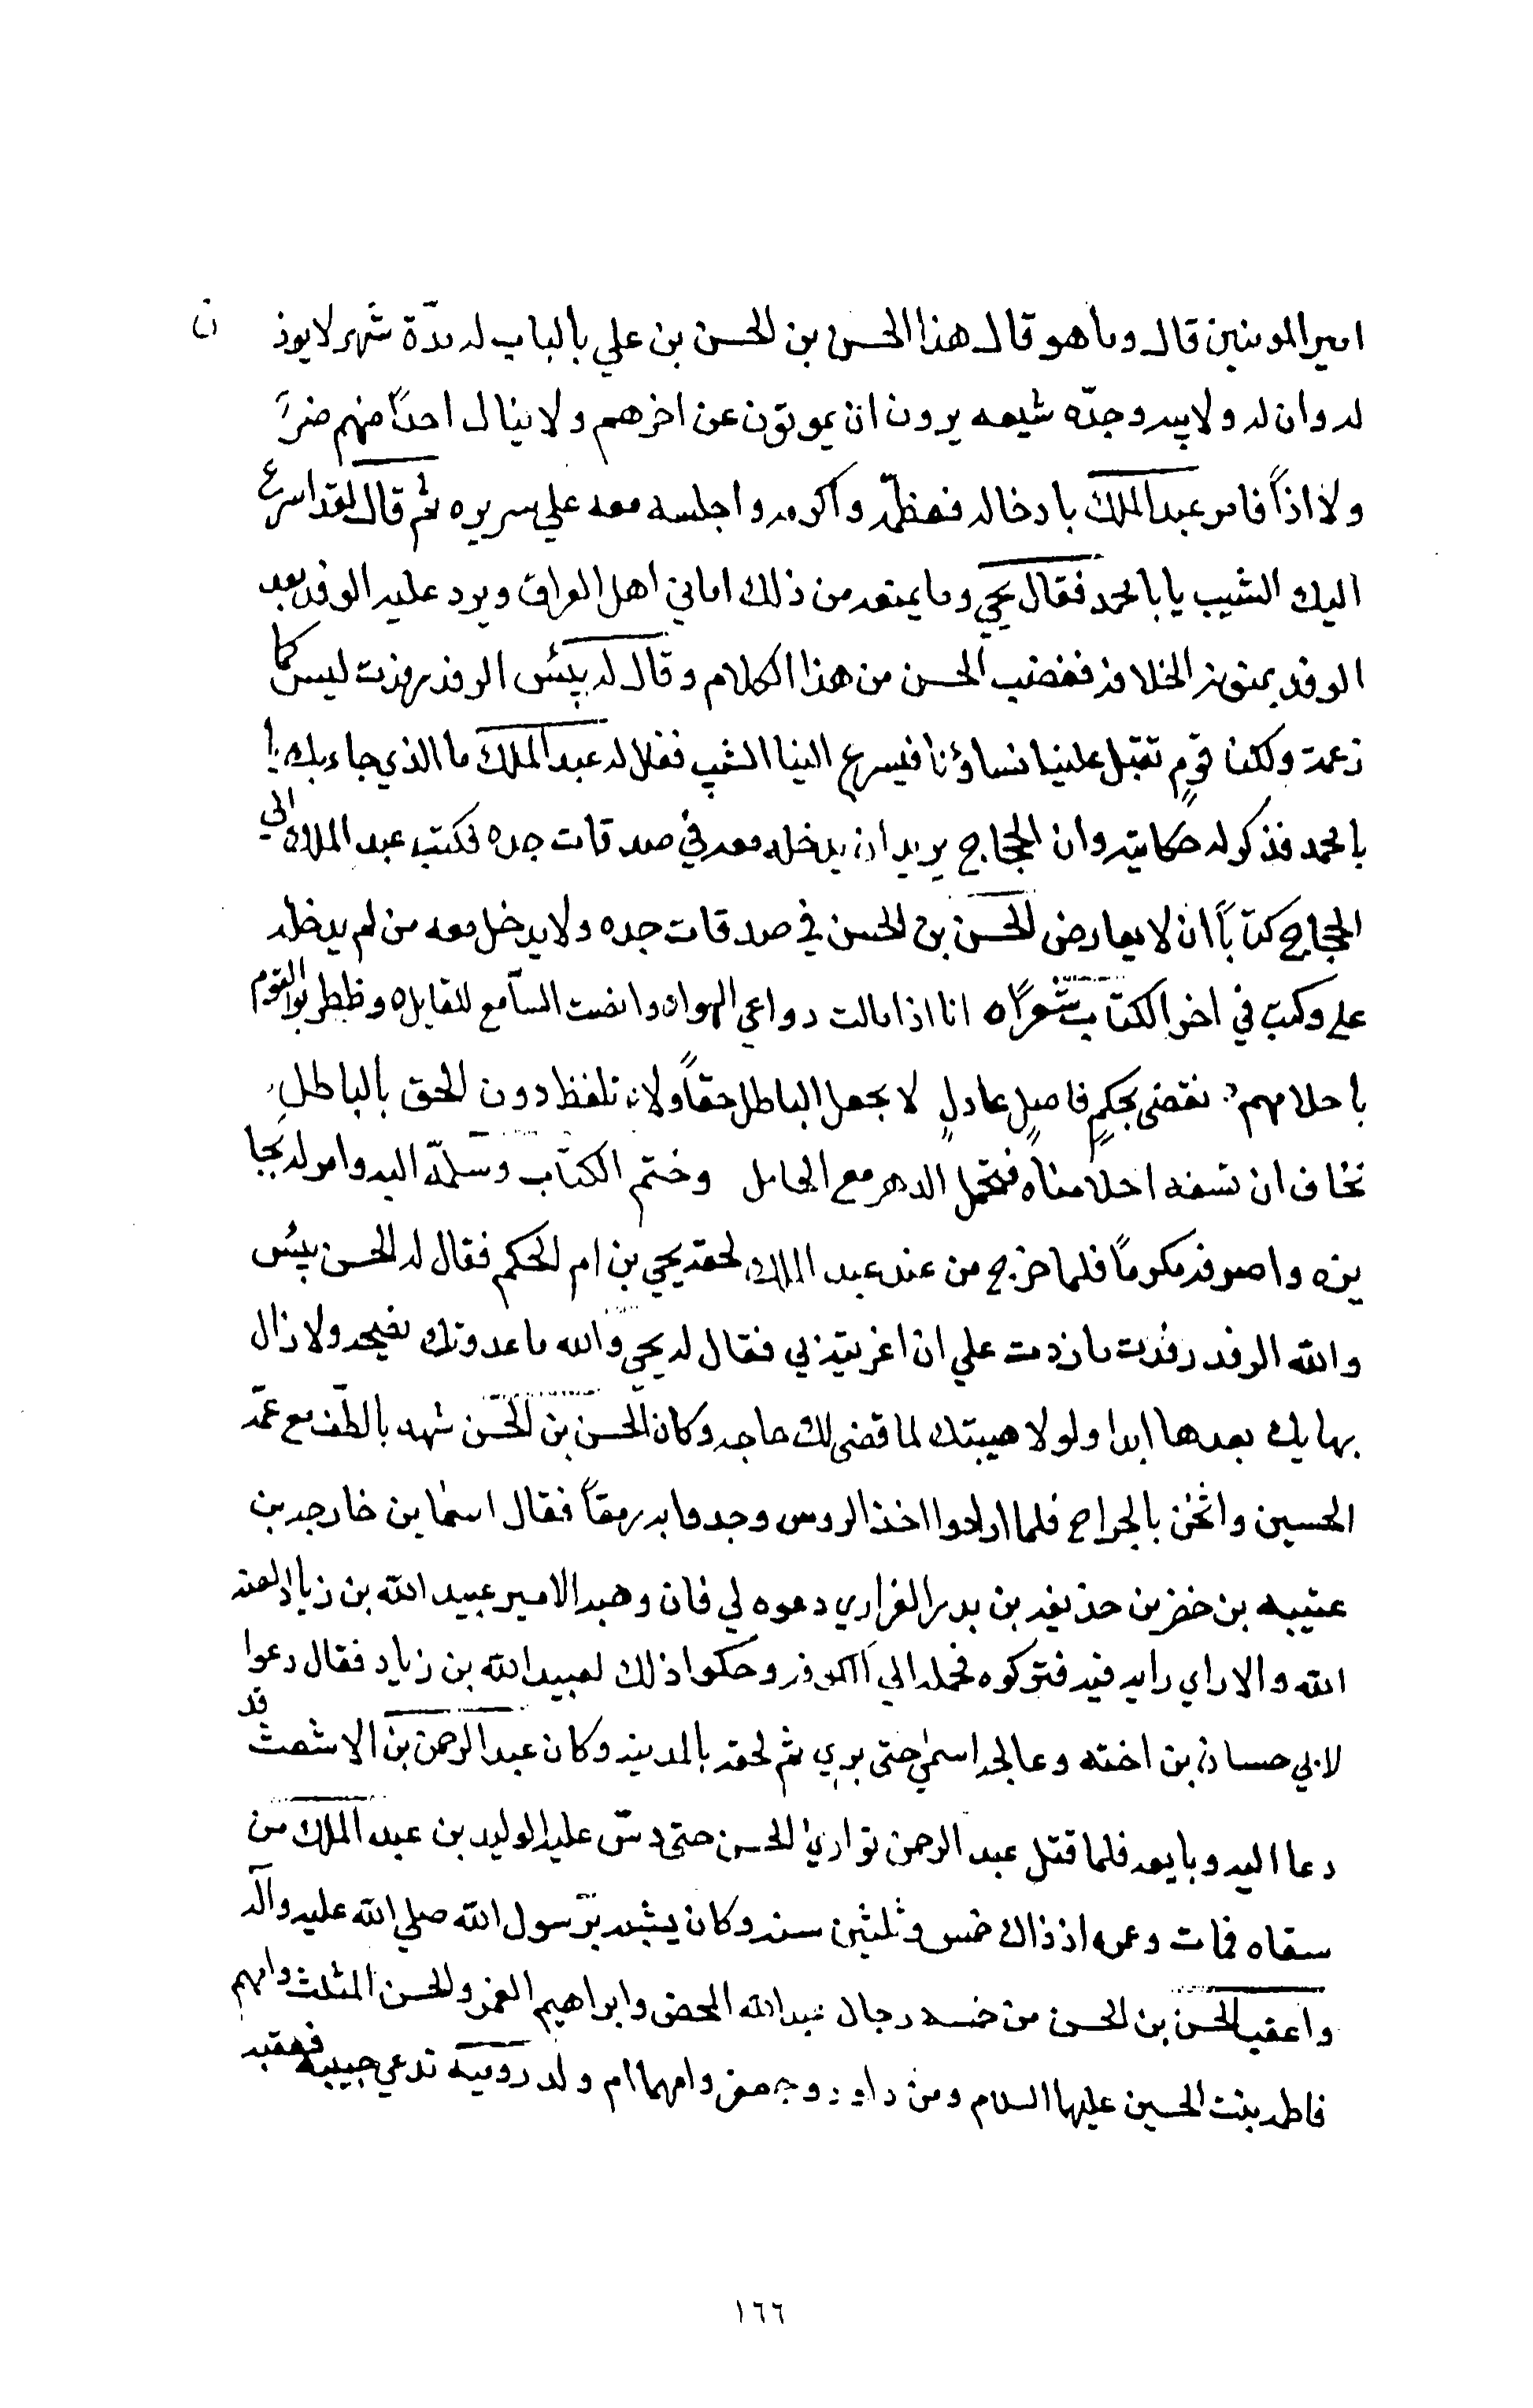 امير المومنين قال وما هو قال هذا الحسن بن الحسن بن علي بالباب له مدّة شهر لا يوذ ن
له وان له ولابيه وجدّه شيعه يرون ان يموتون عن اخرهم ولا ينال احداً منهم ضرّ
ولا اذاً فامر عبد الملك بادخاله فعظمّه واكرمه واجلسه معه علي سريره ثم قال لقد اسرع
اليك الشيب يابا محمد فقال يحي وما يمنعه من ذلك اماني اهل العراق ويرد عليه الوفد بعد
الوفد يمنونه الخلافه فغضب الحسن من هذا الكلام وقال له بيئس الرفد رفدت ليس كما
زعمت ولكنا قومٍ تقبل علينا نساؤنا فيسرع الينا الشيب فقال له عبد الملك ما الذي جاء بك يا
با محمد فذكر له حكايته وان الحجاج يريد ان يدخله معه في صدقات جده فكتب عبد الملك الي
الحجاج كتاباً ان لا يعارض الحسن بن الحسن في صدقات جده ولا يدخل معه من لم يدخله
علي وكتب في اخر الكتاب شعراً ه انا اذا مالت دواعي الهوا ه وانصت السامع للقايل ه القوم
باحلامهم نقضى بحكمٍ فاصلٍ عادلٍ لا نجعل الباطل حقاً ولا نلفظ دون الحق بالباطلِ
نخاف ان تسفه احلامنا ه فنخمل الدهر مع الخامل وختم الكتاب وسلمّه اليه وامر له بجا
يزه واصرفه مكرماً فلما خرج من عند عبد الملك لحقه يحي بن ام الحكم فقال له الحسن بيئس
والله الرفد رفدت ما زدت علي ان اغريته بي فقال له يحي والله ما عدوتك نصيحه ولا زال
يهابك بعدها ابدا ولولا هيبتك لما قضى لك حاجه وكان الحسن بن الحسن شهد بالطّف مع عمّه
الحسين واثخن بالجراح فلما ارادوا اخذ الروس وجدوا به رمقاً فقال اسما بن خارجه بن
عتيبه بن خضر بن حذيفه بن بدر الفزاري دعوه لي فان وهبه الامير عبيد الله بن زياد لعنه
الله والا راي رايه فيه فتركوه فحمله الي الكوفه وحكوا ذلك لعبيد الله بن زياد فقال دعوا
لابي حسان بن اخته وعالجه اسمى حتى بري ثم لحقه بالمدينه وكان عبد الرحمن بن الاشعث قد
دعا اليه وبايعه فلما قتل عبد الرحمن تواري الحسن حتى دسّ عليه الوليد بن عبد الملك من
سقاه فمات وعمره اذ ذاك خمس وثلثين سنه وكان يشبه برسول الله صلي الله عليه وآله
واعقب الحسن بن الحسن من خمسه رجال عبد الله المحض وابراهيم الغمر والحسن المثلث وامهم
فاطمه بنت الحسين عليها السلام ومن داود وجعفر وامهما ام ولد روميه تدعي حبيبه فعقبه
١٦٦